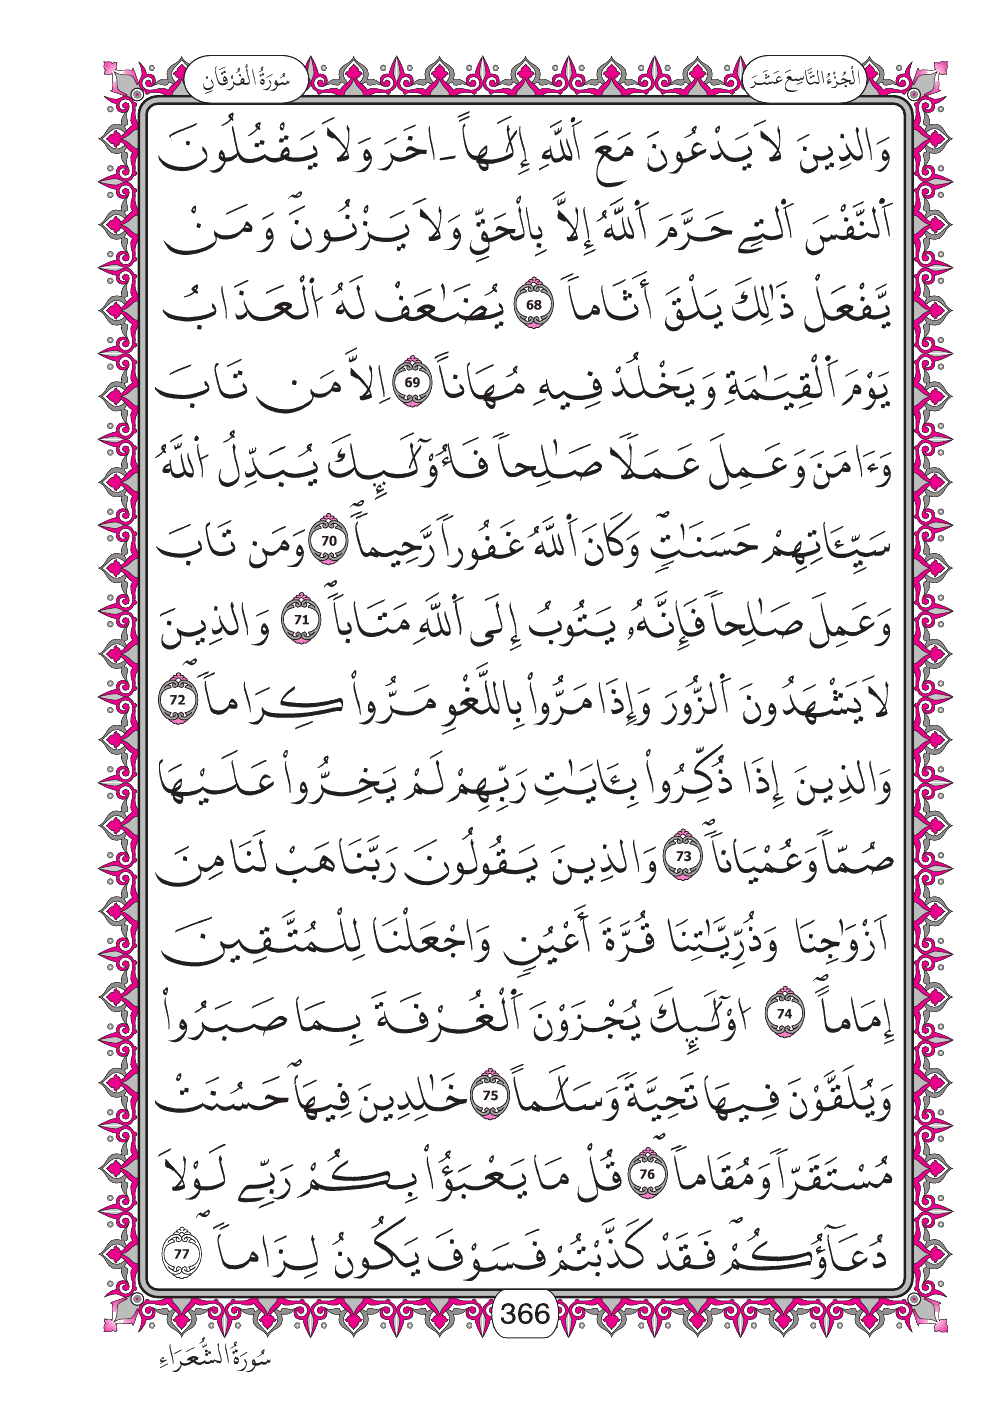 الجُزْءُ التَّاسِعَ عَشَرَ
سُورَةُ الْفُرْقَانِ
وَالذِينَ لَا يَدْعُونَ مَعَ اَ۬للَّهِ إِلَٰهاً ـ اخَرَ وَلَا يَقْتُلُونَ
اَ۬لنَّفْسَ اَ۬لتِے حَرَّمَ اَ۬للَّهُ إِلَّا بِالْحَقِّ وَلَا يَزْنُونَۖ وَمَنْ
يَّفْعَلْ ذَٰلِكَ يَلْقَ أَثَاماٗ 68 يُضَٰعَفْ لَهُ اُ۬لْعَذَابُ
يَوْمَ اَ۬لْقِيَٰمَةِ وَيَخْلُدْ فِيهِ مُهَاناً 69 اِلَّا مَن تَابَ
وَءَامَنَ وَعَمِلَ عَمَلاٗ صَٰلِحاٗ فَأُوْلَٰٓئِكَ يُبَدِّلُ اُ۬للَّهُ
سَيِّـَٔاتِهِمْ حَسَنَٰتٖۖ وَكَانَ اَ۬للَّهُ غَفُوراٗ رَّحِيماٗۖ 70 وَمَن تَابَ
وَعَمِلَ صَٰلِحاٗ فَإِنَّهُۥ يَتُوبُ إِلَى اَ۬للَّهِ مَتَاباٗۖ 71 وَالذِينَ
لَا يَشْهَدُونَ اَ۬لزُّورَ وَإِذَا مَرُّواْ بِاللَّغْوِ مَرُّواْ كِرَاماٗۖ 72
وَالذِينَ إِذَا ذُكِّرُواْ بِـَٔايَٰتِ رَبِّهِمْ لَمْ يَخِرُّواْ عَلَيْهَا
صُمّاٗ وَعُمْيَاناٗۖ 73 وَالذِينَ يَقُولُونَ رَبَّنَا هَبْ لَنَا مِنَ
اَزْوَٰجِنَا وَذُرِّيَّٰتِنَا قُرَّةَ أَعْيُنٖ وَاجْعَلْنَا لِلْمُتَّقِينَ
إِمَاماًۖ 74 اوْلَٰٓئِكَ يُجْزَوْنَ اَ۬لْغُرْفَةَ بِمَا صَبَرُواْ
وَيُلَقَّوْنَ فِيهَا تَحِيَّةٗ وَسَلَٰماً 75 خَٰلِدِينَ فِيهَاۖ حَسُنَتْ
مُسْتَقَرّاٗ وَمُقَاماٗۖ 76 قُلْ مَا يَعْبَؤُاْ بِكُمْ رَبِّے لَوْلَا
دُعَآؤُكُمْۖ فَقَدْ كَذَّبْتُمْ فَسَوْفَ يَكُونُ لِزَاماٗۖ 77
366
سُورَةُ الشُّعَرَاءِ